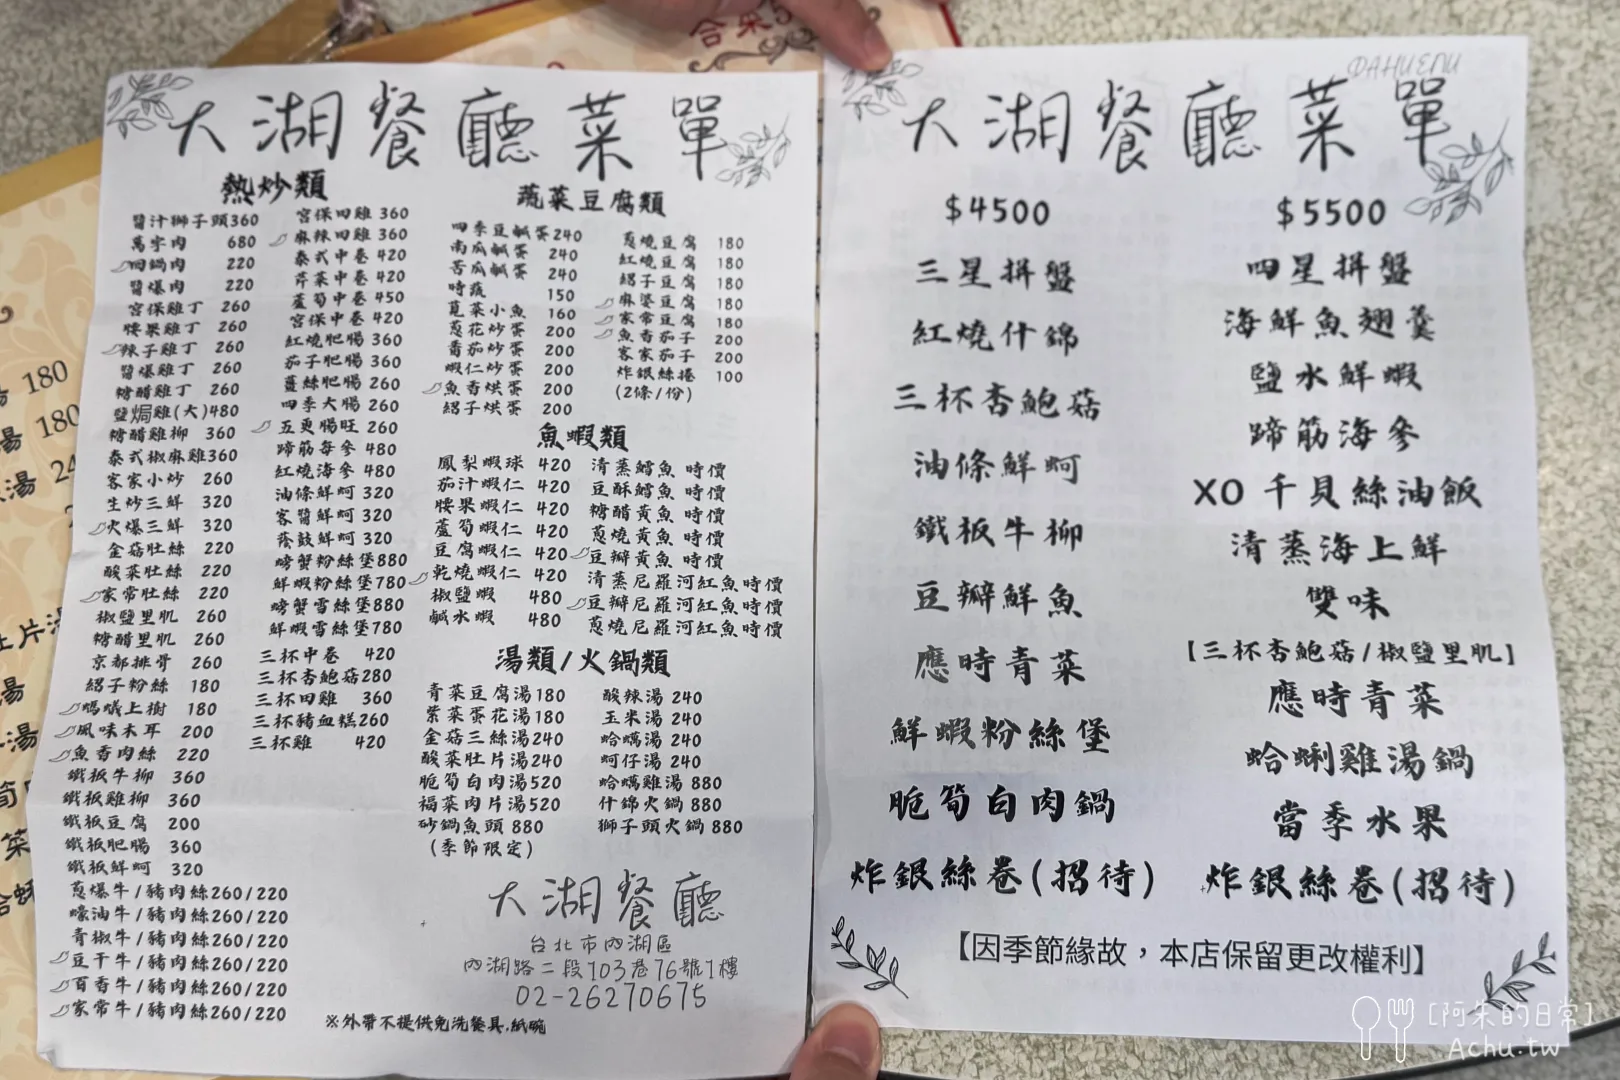 大湖餐廳菜單
熱炒類
醬汁獅子頭360
萬字肉 680
回鍋肉 220
醬爆肉 220
宮保雞丁 260
腰果雞丁 260
辣子雞丁 260
醬爆雞丁 260
糖醋雞丁 260
鹽焗雞(大)480
糖醋雞柳 360
泰式椒麻雞360
客家小炒 260
生炒三鮮 320
火爆三鮮 320
金菇肚絲 220
酸菜肚絲 220
家常肚絲 220
椒鹽里肌 260
糖醋里肌 260
京都排骨 260
紹子粉絲 180
螞蟻上樹 180
風味木耳 200
魚香肉絲 220
鐵板牛柳 360
鐵板雞柳 360
鐵板豆腐 200
鐵板肥腸 360
鐵板鮮蚵 320
蔥爆牛/豬肉絲260/220
蠔油牛/豬肉絲260/220
青椒牛/豬肉絲260/220
豆干牛/豬肉絲260/220
百香牛/豬肉絲260/220
家常牛/豬肉絲260/220
宮保田雞 360
麻辣田雞 360
泰式中卷 420
芹菜中卷 420
蘆筍中卷 450
宮保中卷 420
紅燒肥腸 360
茄子肥腸 360
薑絲肥腸 260
四季大腸 260
五更腸旺 260
蹄筋海參 480
紅燒海參 480
油條鮮蚵 320
客醬鮮蚵 320
蔭鼓鮮蚵 320
螃蟹粉絲堡880
鮮蝦粉絲堡780
螃蟹雪絲堡880
鮮蝦雪絲堡780
三杯中卷 420
三杯杏鮑菇280
三杯田雞 360
三杯豬血糕260
三杯雞 420
蔬菜豆腐類
四季豆鹹蛋240
南瓜鹹蛋 240
苦瓜鹹蛋 240
時蔬 150
莧菜小魚 160
蔥花炒蛋 200
番茄炒蛋 200
蝦仁炒蛋 200
魚香烘蛋 200
紹子烘蛋 200
蔥燒豆腐 180
紅燒豆腐 180
紹子豆腐 180
麻婆豆腐 180
家常豆腐 180
魚香茄子 200
客家茄子 200
炸銀絲捲 100
(2條/份)
魚蝦類
鳳梨蝦球 420
茄汁蝦仁 420
腰果蝦仁 420
蘆筍蝦仁 420
豆腐蝦仁 420
乾燒蝦仁 420
椒鹽蝦 480
鹹水蝦 480
清蒸鱈魚 時價
豆酥鱈魚 時價
糖醋黃魚 時價
蔥燒黃魚 時價
豆瓣黃魚 時價
清蒸尼羅河紅魚時價
豆瓣尼羅河紅魚時價
蔥燒尼羅河紅魚時價
湯類/火鍋類
青菜豆腐湯180
紫菜蛋花湯180
金菇三絲湯240
酸菜肚片湯240
脆筍白肉湯520
福菜肉片湯520
砂鍋魚頭 880
(季節限定)
酸辣湯 240
玉米湯 240
蛤蠣湯 240
蚵仔湯 240
蛤蠣雞湯 880
什錦火鍋 880
獅子頭火鍋 880
大湖餐廳
台北市內湖區
內湖路二段103巷76號1樓
02-26270675
※外帶不提供免洗餐具.紙碗
大湖餐廳菜單
ФАНUEПU
$4500
三星拼盤
紅燒什錦
三杯杏鮑菇
油條鮮蚵
鐵板牛柳
豆瓣鮮魚
應時青菜
鮮蝦粉絲堡
脆筍白肉鍋
炸銀絲卷(招待)
$5500
四星拼盤
海鮮魚翅羹
鹽水鮮蝦
蹄筋海參
XO干貝絲油飯
清蒸海上鮮
雙味
【三杯杏鮑菇/椒鹽里肌】
應時青菜
蛤蜊雞湯鍋
當季水果
炸銀絲卷(招待)
【因季節緣故,本店保留更改權利】
180
180
[阿朱的日常]
Achu.tw